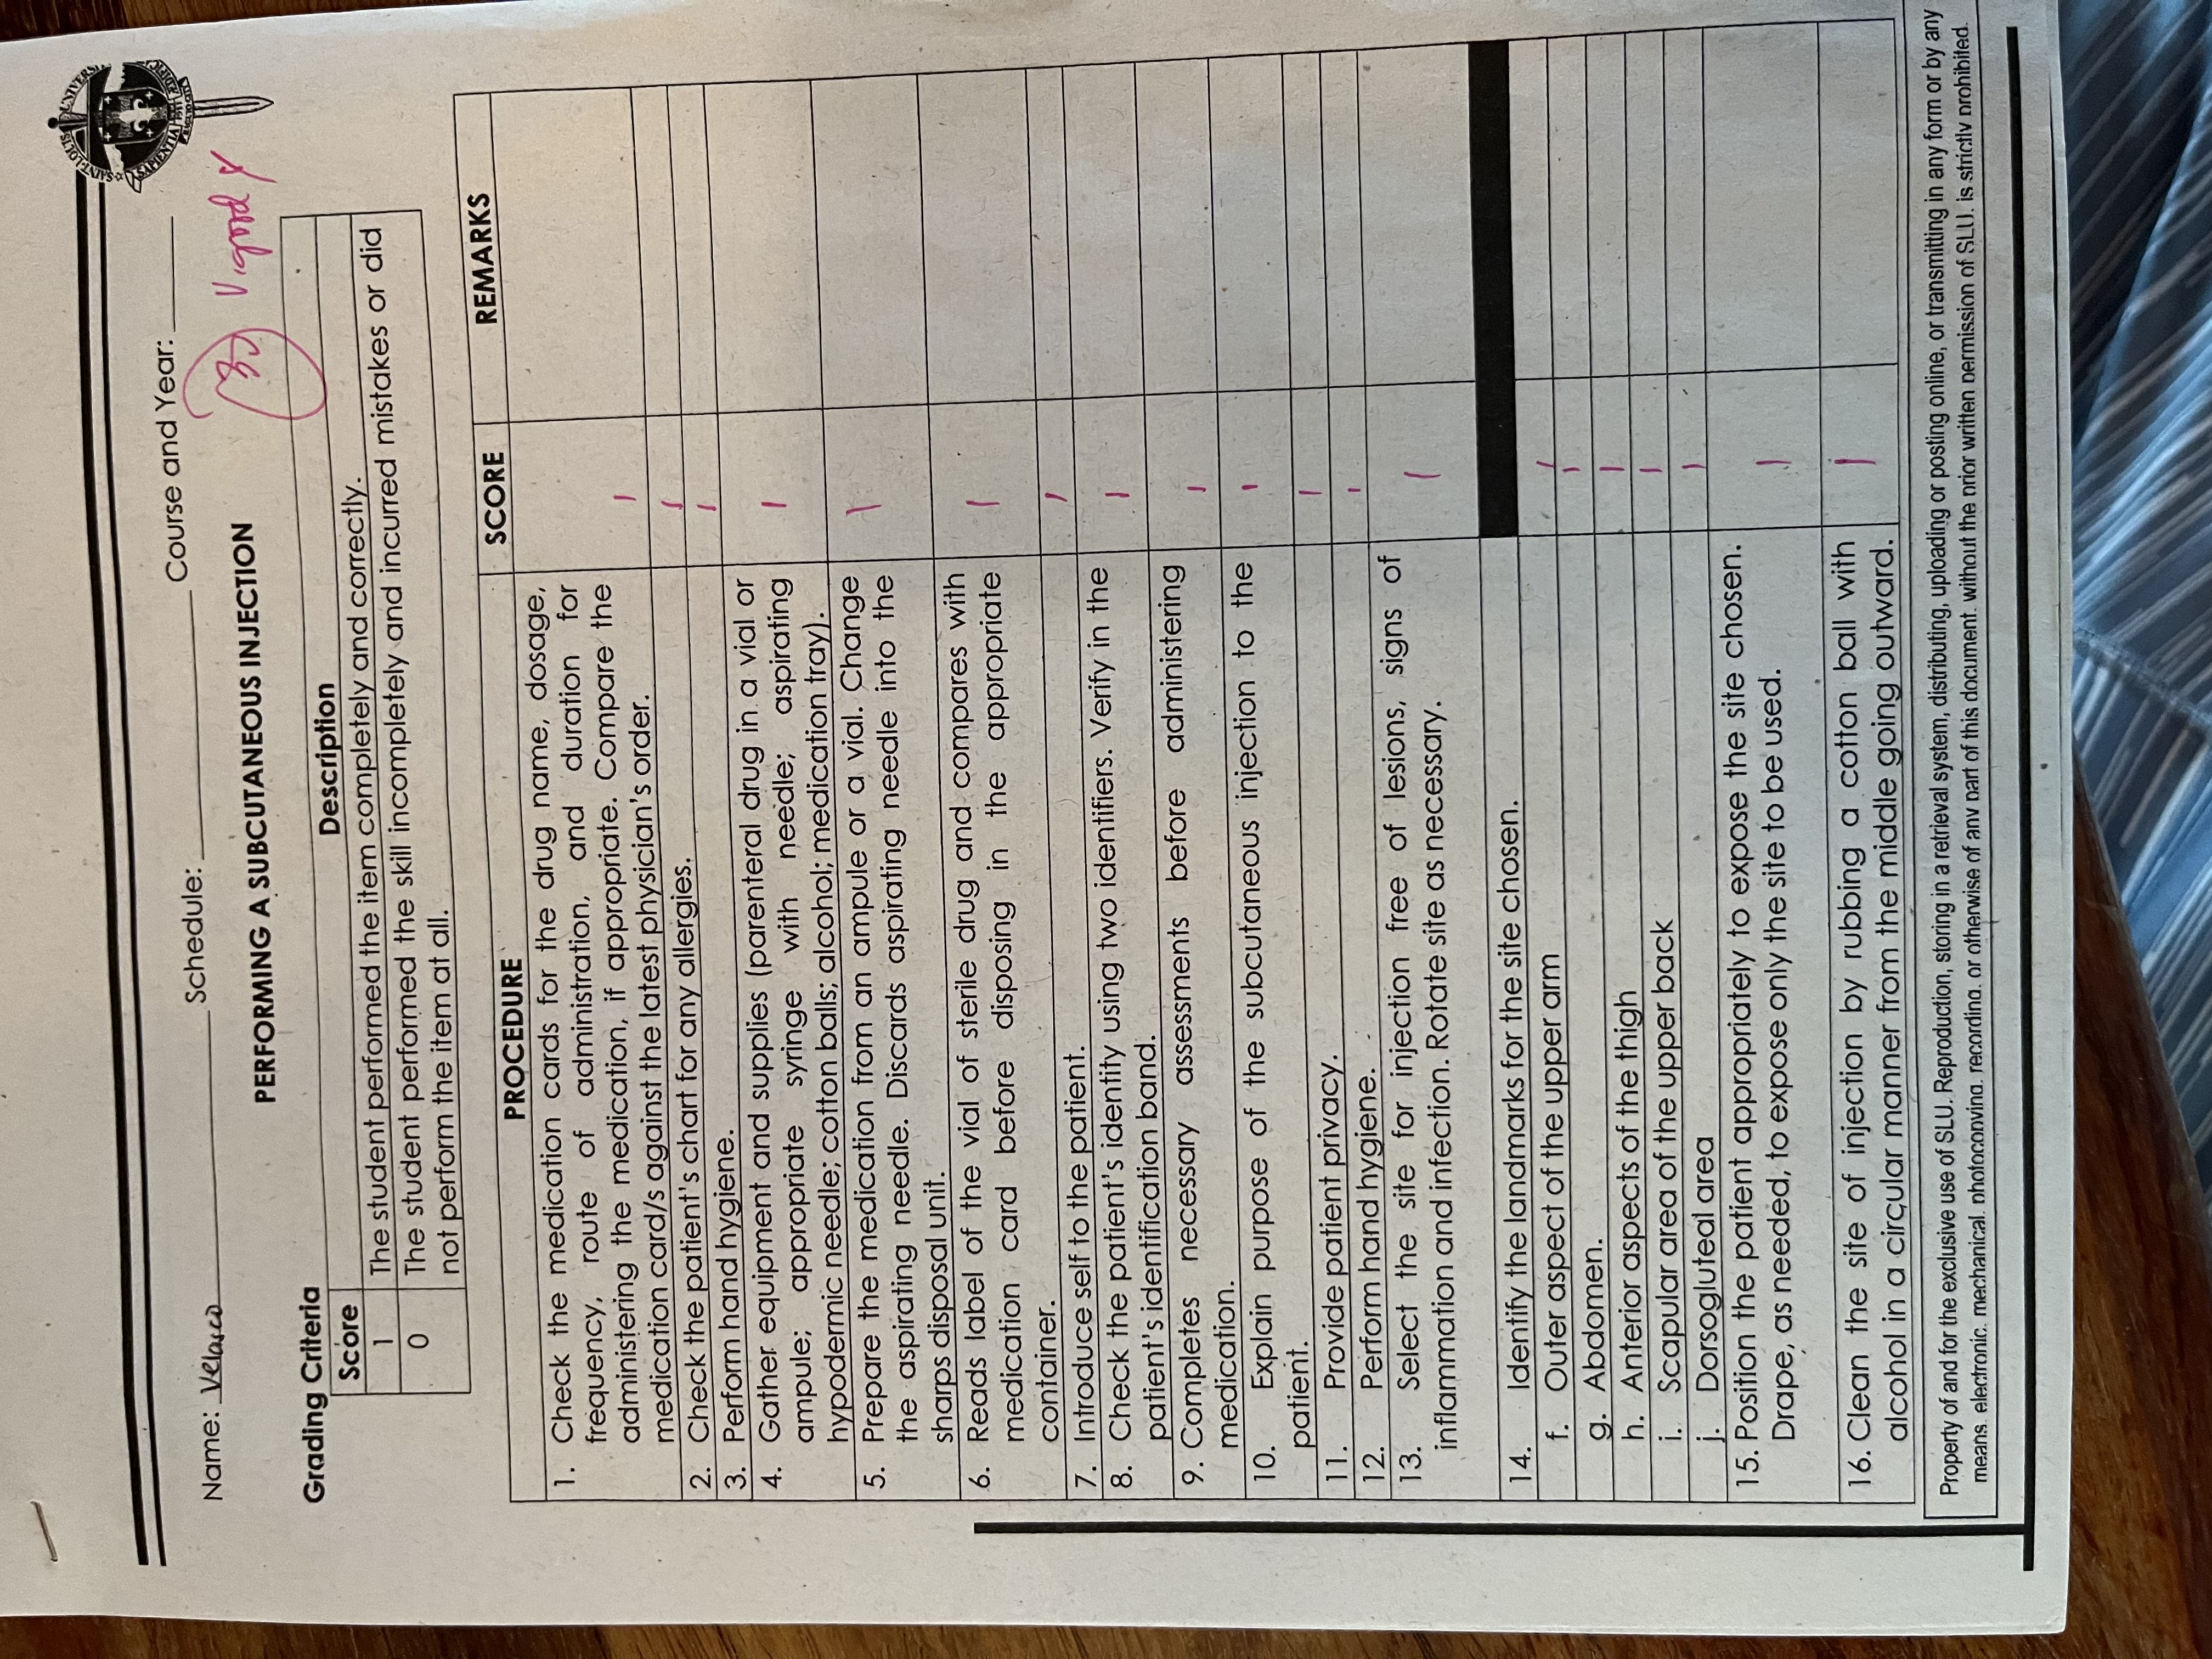 SAINT LOUIS UNIVERSITY
SAPIENTIA ÆDIFICAT
1911
BAGUIO CITY
Name: Velasco Schedule: Course and Year:
PERFORMING A SUBCUTANEOUS INJECTION
V. good
Grading Criteria
Score Description
1 The student performed the item completely and correctly.
0 The student performed the skill incompletely and incurred mistakes or did
not perform the item at all.
PROCEDURE SCORE REMARKS
1. Check the medication cards for the drug name, dosage,
frequency, route of administration, and duration for
administering the medication, if appropriate. Compare the
medication card/s against the latest physician's order. 1
2. Check the patient's chart for any allergies. 1
3. Perform hand hygiene. 1
4. Gather equipment and supplies (parenteral drug in a vial or
ampule; appropriate syringe with needle; aspirating 1
hypodermic needle; cotton balls; alcohol; medication tray).
5. Prepare the medication from an ampule or a vial. Change 1
the aspirating needle. Discards aspirating needle into the
sharps disposal unit.
6. Reads label of the vial of sterile drug and compares with
medication card before disposing in the appropriate 1
container.
7. Introduce self to the patient. 1
8. Check the patient's identity using two identifiers. Verify in the 1
patient's identification band.
9. Completes necessary assessments before administering 1
medication.
10. Explain purpose of the subcutaneous injection to the 1
patient.
11. Provide patient privacy. 1
12. Perform hand hygiene. 1
13. Select the site for injection free of lesions, signs of 1
inflammation and infection. Rotate site as necessary.
14. Identify the landmarks for the site chosen.
f. Outer aspect of the upper arm 1
g. Abdomen. 1
h. Anterior aspects of the thigh 1
i. Scapular area of the upper back 1
j. Dorsogluteal area 1
15. Position the patient appropriately to expose the site chosen.
Drape, as needed, to expose only the site to be used. 1
16. Clean the site of injection by rubbing a cotton ball with 1
alcohol in a circular manner from the middle going outward.
Property of and for the exclusive use of SLU. Reproduction, storing in a retrieval system, distributing, uploading or posting online, or transmitting in any form or by any
means, electronic, mechanical, photocopying, recording, or otherwise of any part of this document, without the prior written permission of SLU, is strictly prohibited.